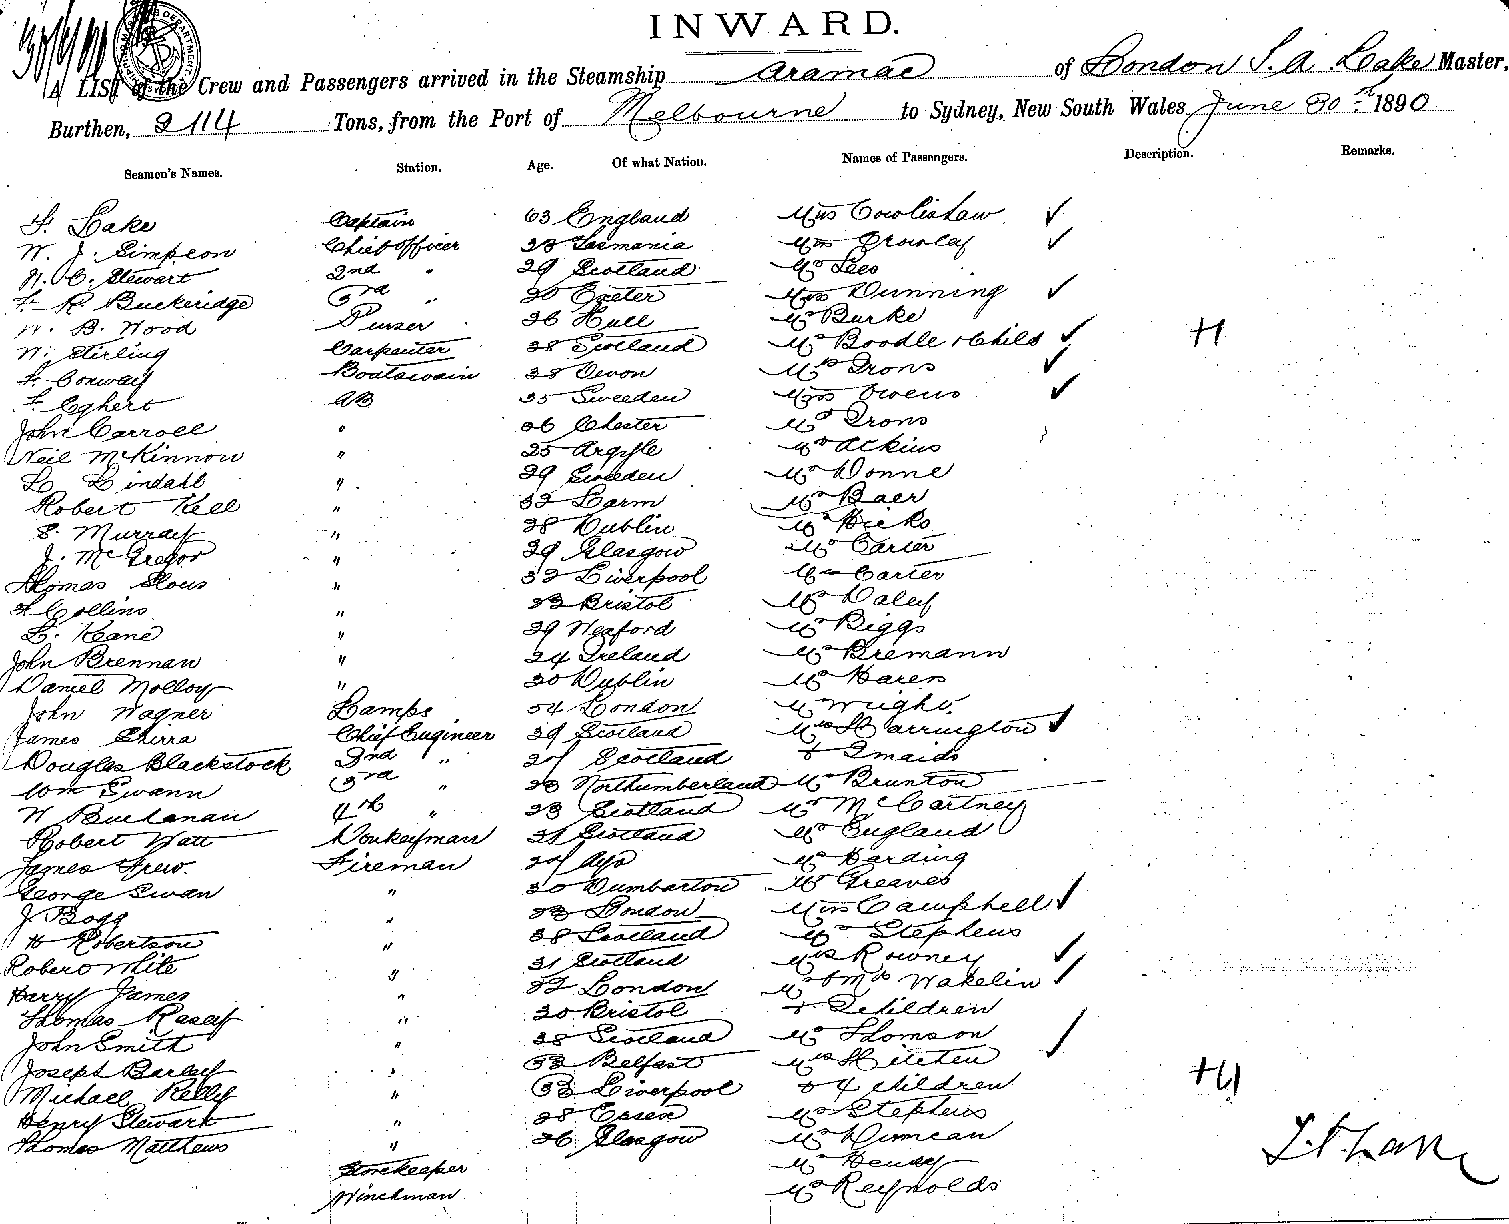 INWARD.
A LIST of the Crew and Passengers arrived in the Steamship Aramac of London Lake Master,
Burthen, 2114 Tons, from the Port of Melbourne to Sydney, New South Wales June 30th 1890
Seamen's Names. Station. Age. Of what Nation. Names of Passengers. Description. Remarks.
Lake Captain 63 England Mrs Cowlishaw
W. J. Simpson Chief officer Tasmania Mrs Crowley
C. Stewart 2nd " 29 Scotland Mr Lees
R Buckeridge 3rd " Exeter Mrs Dunning
W. B. Wood Purser 36 Hull Mr Burke
W. Stirling Carpenter 38 Scotland Mrs Boodle & Child H
Conway Boatswain 38 Devon Mrs Irons
Eghert AB 35 Sweeden Mrs Owens
John Carroll " 36 Chester Mr Irons
Neil McKinnon " 25 Argyle Mr Atkins
Lindahl " 29 Sweeden Mr Donne
Robert Kell " Mr Baer
S. Murray " 38 Dublin Mr Hicks
J. McGregor " 39 Glasgow Mr Carter
Thomas " 32 Liverpool Mr Carter
Collins " 33 Bristol Mr Daley
Keane " 29 Mr Biggs
John Brennan " 24 Ireland Mr Bremann
Daniel Molloy " 30 Dublin Mr
John Wagner Lamps 54 London Mr Wright
James Chief Engineer 39 Scotland Mrs Harrington
Douglas Blackstock 2nd " Scotland & 2 maids
Wm Swann 3rd " Northumberland Mr Brunton
W Buchanan 4th " 23 Scotland Mr McCartney
Robert Watt Donkeyman 31 Scotland Mr England
James Frew. Fireman Mr Harding
George Swan " 30 Dumbarton Mr Greaves
J Bogg " 33 London Mrs Campbell
H Robertson " 38 Scotland Mr Stephens
Robert White " 31 Scotland Mrs Rowney
Harry James " 32 London Mr & Mrs Wakelin
Thomas " 30 Bristol & 2 children
John Smith " 38 Scotland Mr Thomson
Joseph " 33 Belfast Mrs Hitchen
Michael Kelly " 33 Liverpool & 4 children
Henry Stewart " 38 Essex Mr Stephens
Thomas Matthews " 36 Glasgow Mr Duncan
Storekeeper Mr Hendy
Winchman Mr Reynolds